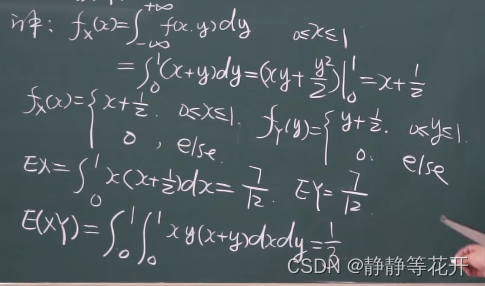 解: f_X(x)=∫_{-∞}^{+∞} f(x,y)dy 0≤x≤1
=∫_0^1(x+y)dy=(xy+y²/2)|_0^1=x+1/2
f_X(x)={x+1/2. 0≤x≤1. 0, else f_Y(y)={y+1/2. 0≤y≤1. 0. else
EX=∫_0^1 x(x+1/2)dx=7/12. EY=7/12
E(XY)=∫_0^1∫_0^1 xy(x+y)dxdy=1/3
CSDN @静静等花开